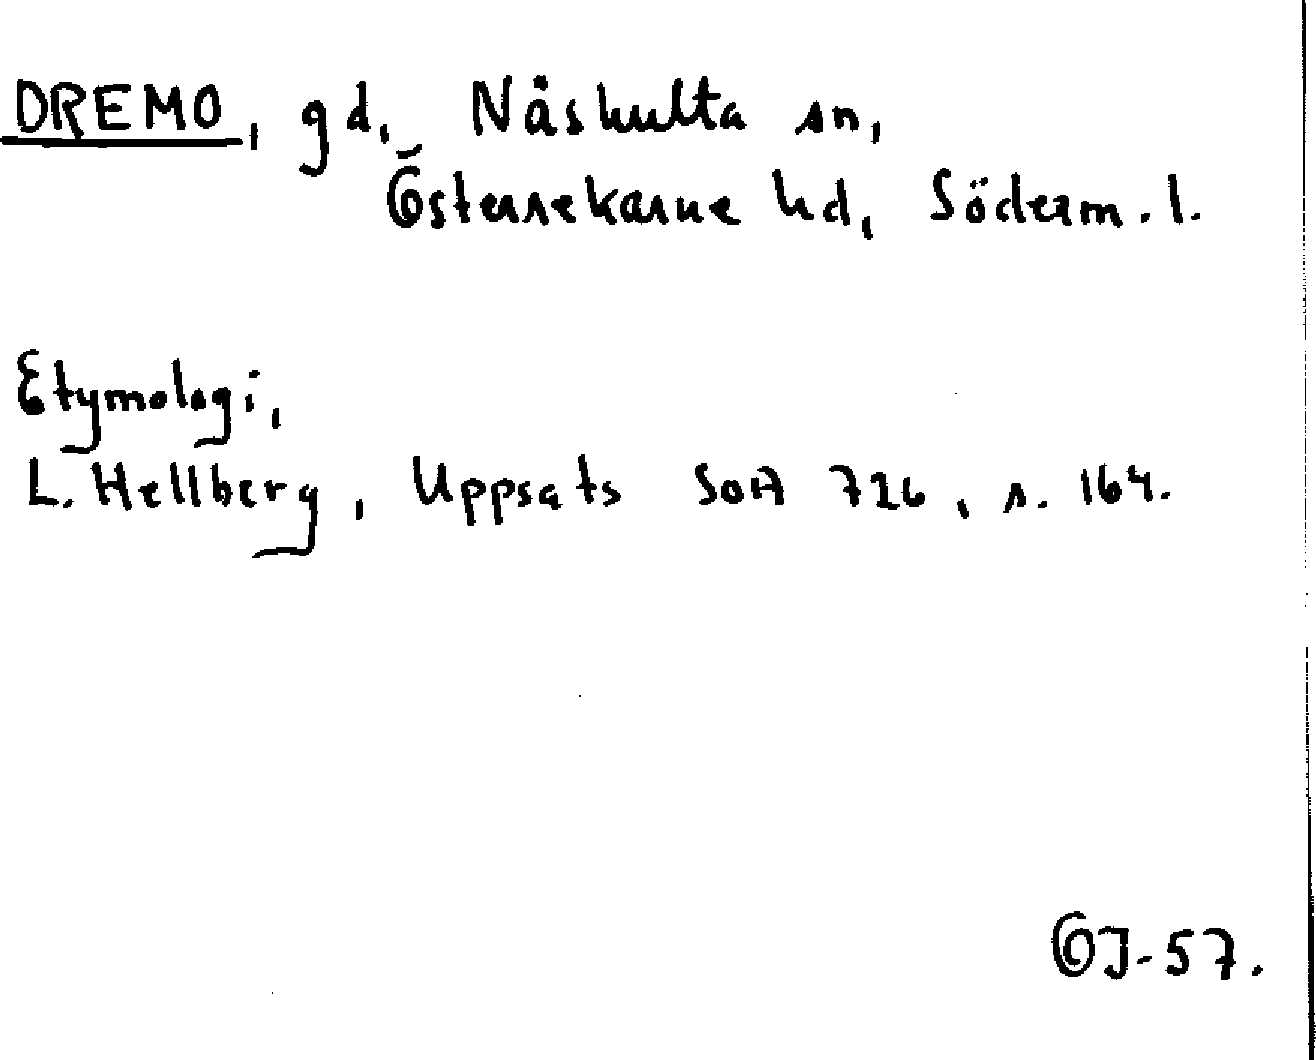 DREMO, gd, Näshulta sn,
Österrekarne hd, Söderm. l.
Etymologi,
L. Hellberg, Uppsats SOA 726, s. 164.
ÖJ-57.